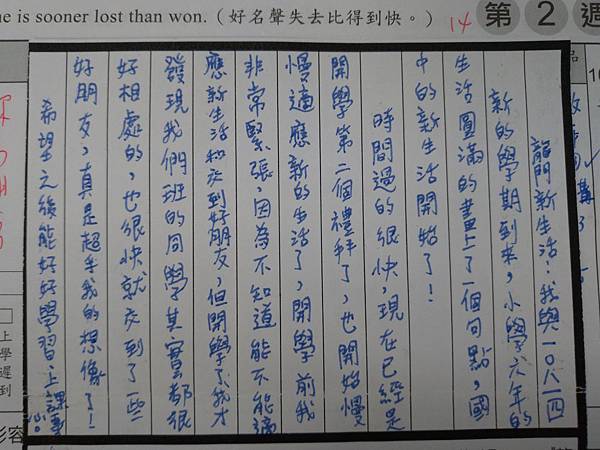 ne is sooner lost than won.（好名聲失去比得到快。）
14
第2週
龍門新生活!我與一〇八一四
新的學期到來,小學六年的
生活圓滿的畫上了一個句點,國
中的新生活開始了!
時間過的很快,現在已經是
開學第二個禮拜了,也開始慢
慢適應新的生活了,開學前我
非常緊張,因為不知道能不能適
應新生活和交到好朋友,但開學了我才
發現我們班的同學其實都很
好相處的,也很快就交到了一些
好朋友,真是超乎我的想像了!
希望之後能好好學習,上課專心。
上學遲到